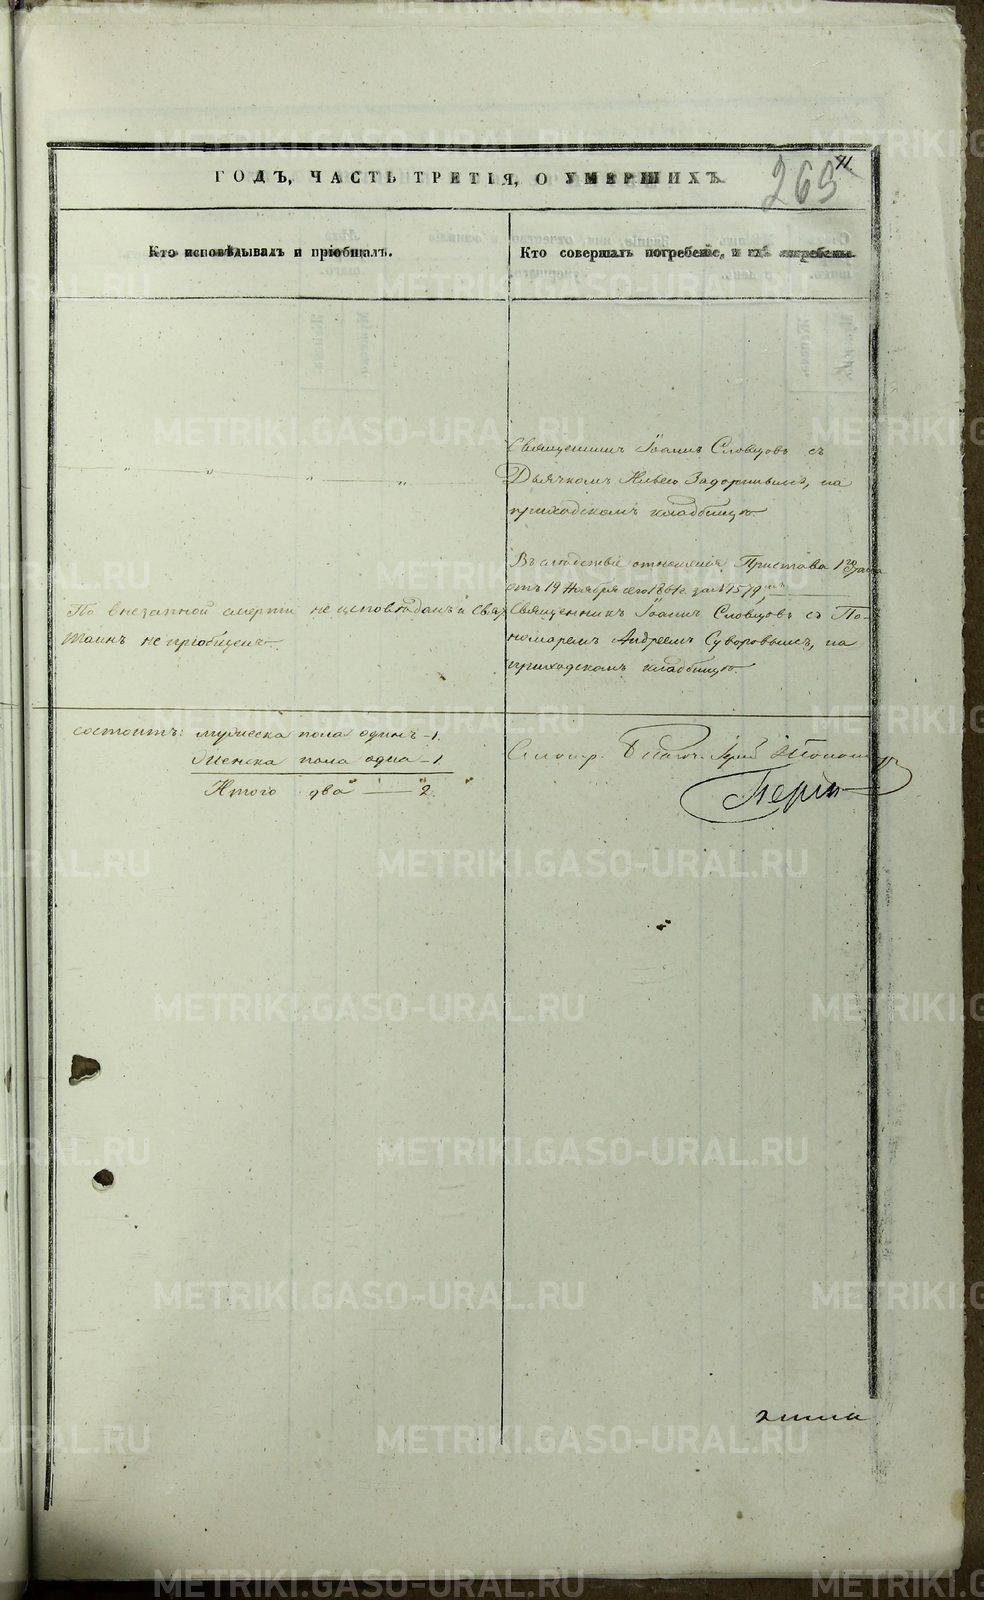 265
ГОДЪ, ЧАСТЬ ТРЕТІЯ, О УМЕРШИХЪ.
Кто исповѣдывалъ и пріобщалъ.
Кто совершалъ погребеніе, и гдѣ погребены.
Священникъ Іоаннъ Словцовъ съ
Дьячкомъ Ильею Задоринымъ, на
приходскомъ кладбищѣ.
Въ слѣдствіе отношенія Пристава 1го
отъ 19 Ноября сего 1861 г. за № 579мъ
По внезапной смерти не исповѣданъ и Свят.
Таинъ не пріобщенъ.
Священникъ Іоаннъ Словцовъ съ По-
номаремъ Андреемъ Суворовымъ, на
приходскомъ кладбищѣ.
состоитъ: мужеска пола одинъ - 1.
Женска пола одна - 1
Итого два — 2.
METRIKI.GASO-URAL.RU